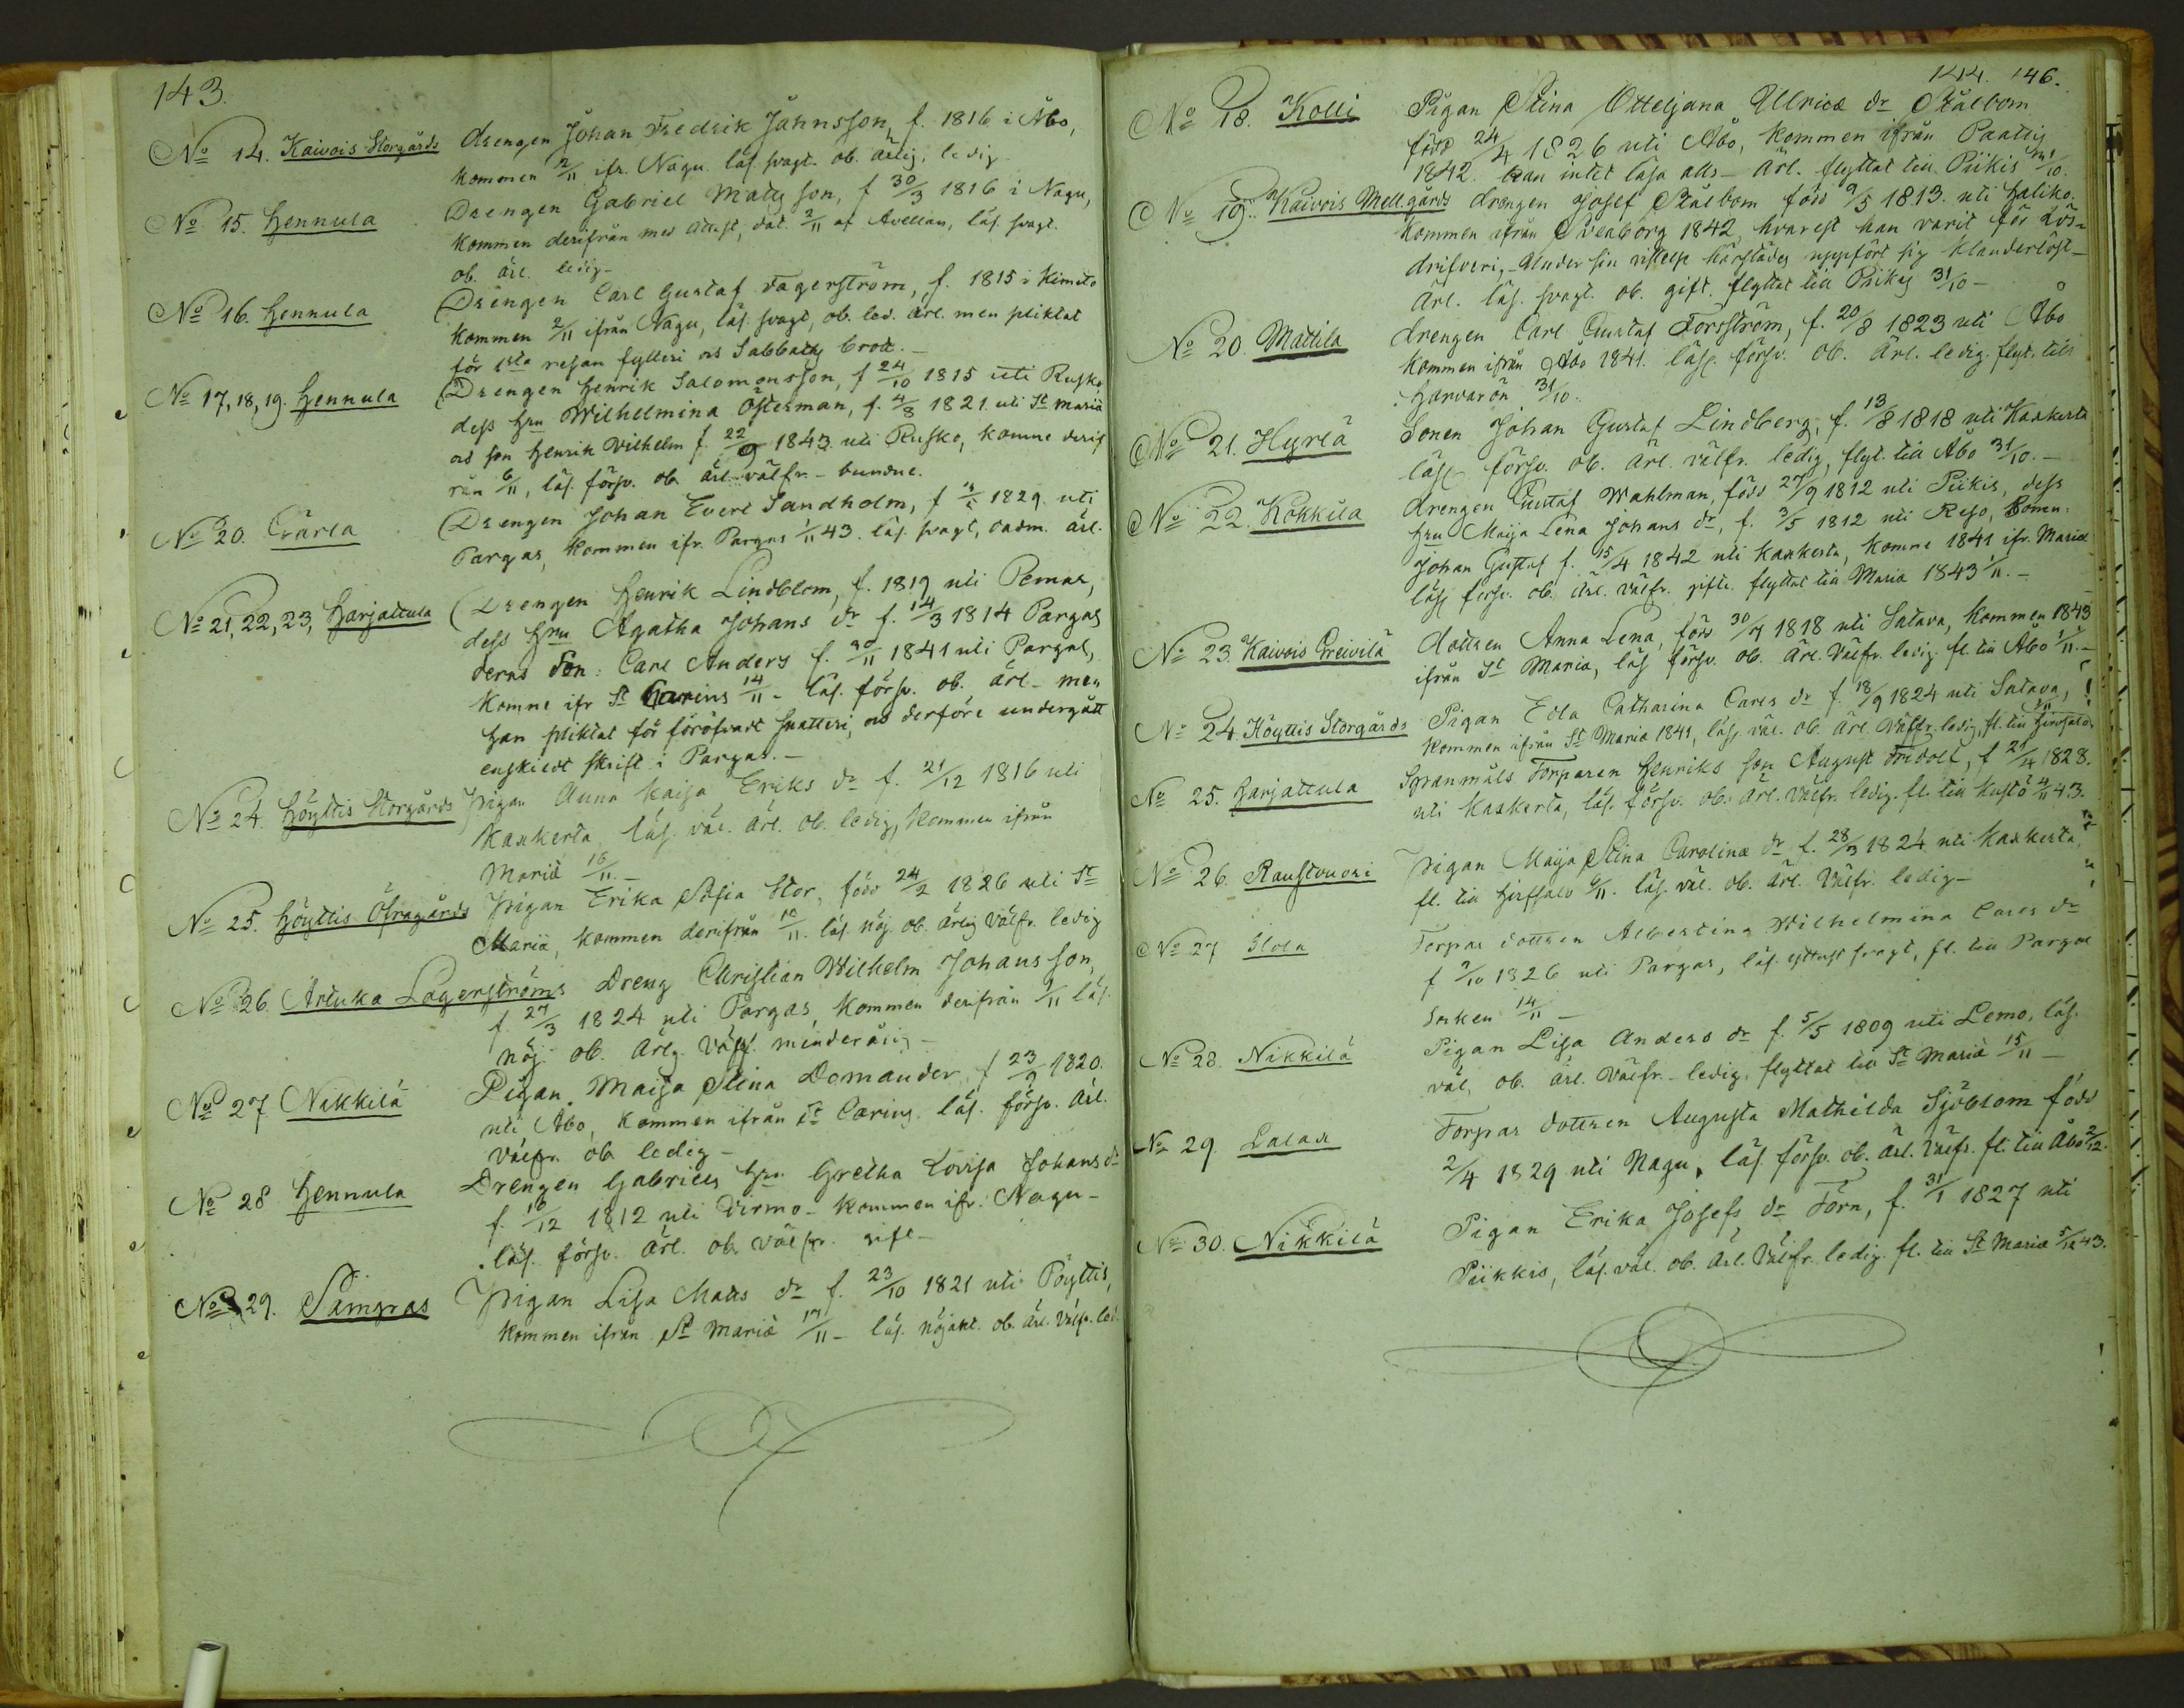 143.
No 14. Kaivois Storgårds Drengen Johan Fredrik Jahnsson, f. 1816 i Åbo,
kommen 2/11 ifr. Nagu läs. svagt. ob. ärlig, ledig
No 15. Hennula Drengen Gabriel Matsson, f 30/3 1816 i Nagu,
kommen derifrån med attest, dat. 2/11 af Avellan, läs. svagt.
ob. ärl. ledig-
No 16. Hennula Drengen Carl Gustaf Fagerström, f. 1815 i Kimito
kommen 2/11 ifrån Nagu, läs. svagt, ob. led. ärl. men pliktat
för 1sta resan fylleri os Sabbats brott.-
No 17, 18, 19. Hennula Drengen Henrik Salomonsson, f 24/10 1815 uti Rusko
dess hru Wilhelmina Österman, f. 4/8 1821 uti St Mariä
os son Henrik Vilhelm f. 22/9 1843 uti Rusko, komne derif
rån 6/11, läs. försv. ob. ärl. välfr.- bundne.
No 20. Gärla Drengen Johan Evert Sandholm, f 1829 uti
Pargas, kommen ifr. Pargas 1/11 43. läs. svagt, oadm. ärl.
No 21, 22, 23, Harjattula Drengen Henrik Lindblom, f. 1819 uti Pemar,
dess hru Agatha Johans dr f. 14/3 1814 Pargas
deras Son: Carl Anders f. 30/11 1841 uti Pargas,
Komne ifr St Carins 14/11 - läs. försv. ob. ärl - men
han pliktat för föröfvadt snatteri, os derföre undergått
enskildt skrift i Pargas.-
No 24. Höyttis Storgårds Pigan Anna Kaisa Eriks dr f. 21/12 1816 uti
Kaxkerta läs. väl. ärl. ob. ledig, kommen ifrån
Mariä 16/11.-
No 25. Höyttis Öfvragårds Pigan Erika Sofia Stor, född 24/2 1826 uti St
Mariä, kommen derifrån 12/11. läs. nöj. ob. ärlig Välfr. ledig
No 26. Artuka Lagerströms Dreng Christian Wilhelm Johansson,
f. 27/3 1824 uti Pargas, kommen derifrån 9/11 läs.
nöj. ob. ärlig. Välfr. minderårig-
No 27 Nikkilä Pigan Maija Stina Domander f 23/9 1820.
uti Åbo, kommen ifrån St Carins. läs. försv. ärl.
Välfr. ob ledig-
No 28 Hennula Drengen Gabriels hru Gretha Lovisa Johans dr
f. 16/12 1812 uti Virmo- kommen ifr. Nagu-
läs. försv. ärl. ob. välfr. gift-
No 29. Sämpas Pigan Lisa Matts dr f. 23/10 1821 uti Pöyttis,
kommen ifrån St Mariä 17/11- läs. nöjakt. ob. ärl. Välfr. led.
144. 146.
No 18. Kolli Pigan Stina Otteljana Ullrica dr Stålbom
född 24/4 1826 uti Åbo, kommen ifrån Paattis
1842. kan intet läsa alls- ärl. flyttat till Piikis 31/10.
No 19. Kaivois Mellgårds Drengen Josef Stålbom född 9/5 1813. uti Haliko.
kommen ifrån Sveaborg 1842, hvarest han varit för Lös-
drifveri,- Under sin vistelse härstädes uppfört sig klanderlöst-
ärl. läs. svagt. ob. gift. flyttat till Piikis 31/10-
No 20. Mattila drengen Carl Gustaf Forsström, f. 20/8 1823 uti Åbo
kommen ifrån Åbo 1841. läs. försv. ob. ärl. ledig. flyt. till
Harvarön 31/10.
No 21. Hyrlä Sonen Johan Gustaf Lindberg, f. 13/8 1818 uti Kaxkerta
läs försv. ob. ärl. välfr. ledig, flyt. till Åbo 31/10.-
No 22. Kokkila drengen Gustaf Wahlman, född 27/9 1812 uti Piikis, dess
hru Maija Lena Johans dr, f. 3/5 1812 uti Reso, Sonen:
Johan Gustaf f. 15/4 1842 uti Kaxkerta, komne 1841 ifr. Mariä
läs försv. ob. ärl. välfr. gifte. flyttat till Mariä 1843 1/11.-
No 23. Kaivois Preivilä dottren Anna Lena, född 30/7 1818 uti Satava, kommen 1843
ifrån St Mariä, läs försv. ob. ärl. Välfr. ledig fl. till Åbo 1/11.-
No 24 Köyttis Storgårds Pigan Eda Catharina Carls dr f. 18/9 1824 uti Satava,
kommen ifrån St Mariä 1841, läs väl. ob. ärl. Välfr. ledig, fl. till Hirfsalo
No 25. Harjattula Spanmåls Torparen Henriks son August Fridolf, f 21/4 1828.
uti Kaxkerta, läs. försv. ob. ärl. Välfr. ledig. fl. till Kustö 4/11 43.
No 26. Raustvuori Pigan Maija Stina Carolina dr f. 28/3 1824 uti Kaxkerta,
fl. till Hirfsalo 6/11. läs. väl. ob. ärl. Välfr. ledig-
No 27 Ilola Torpar dottren Albertina Wilhelmina Carls dr
f 9/10 1826 uti Pargas, läs. yttest svagt, fl. till Pargas
Socken 14/11-
No 28. Nikkilä Pigan Lisa Anders dr f. 5/5 1809 uti Lemo, läs.
väl, ob. ärl. Välfr.- ledig. flyttat till St Mariä 15/11-
No 29. Lalax Torpar dottren Augusta Mathilda Sjöblom född
2/4 1829 uti Nagu, läs. försv. ob. ärl. Välfr. fl. till Åbo 2/12.
No 30. Nikkilä Pigan Erika Josefs dr Törn, f. 31/1 1827 uti
Piikkis, läs. väl. ob. ärl. Välfr. ledig. fl. till St Mariä 5/12 43.